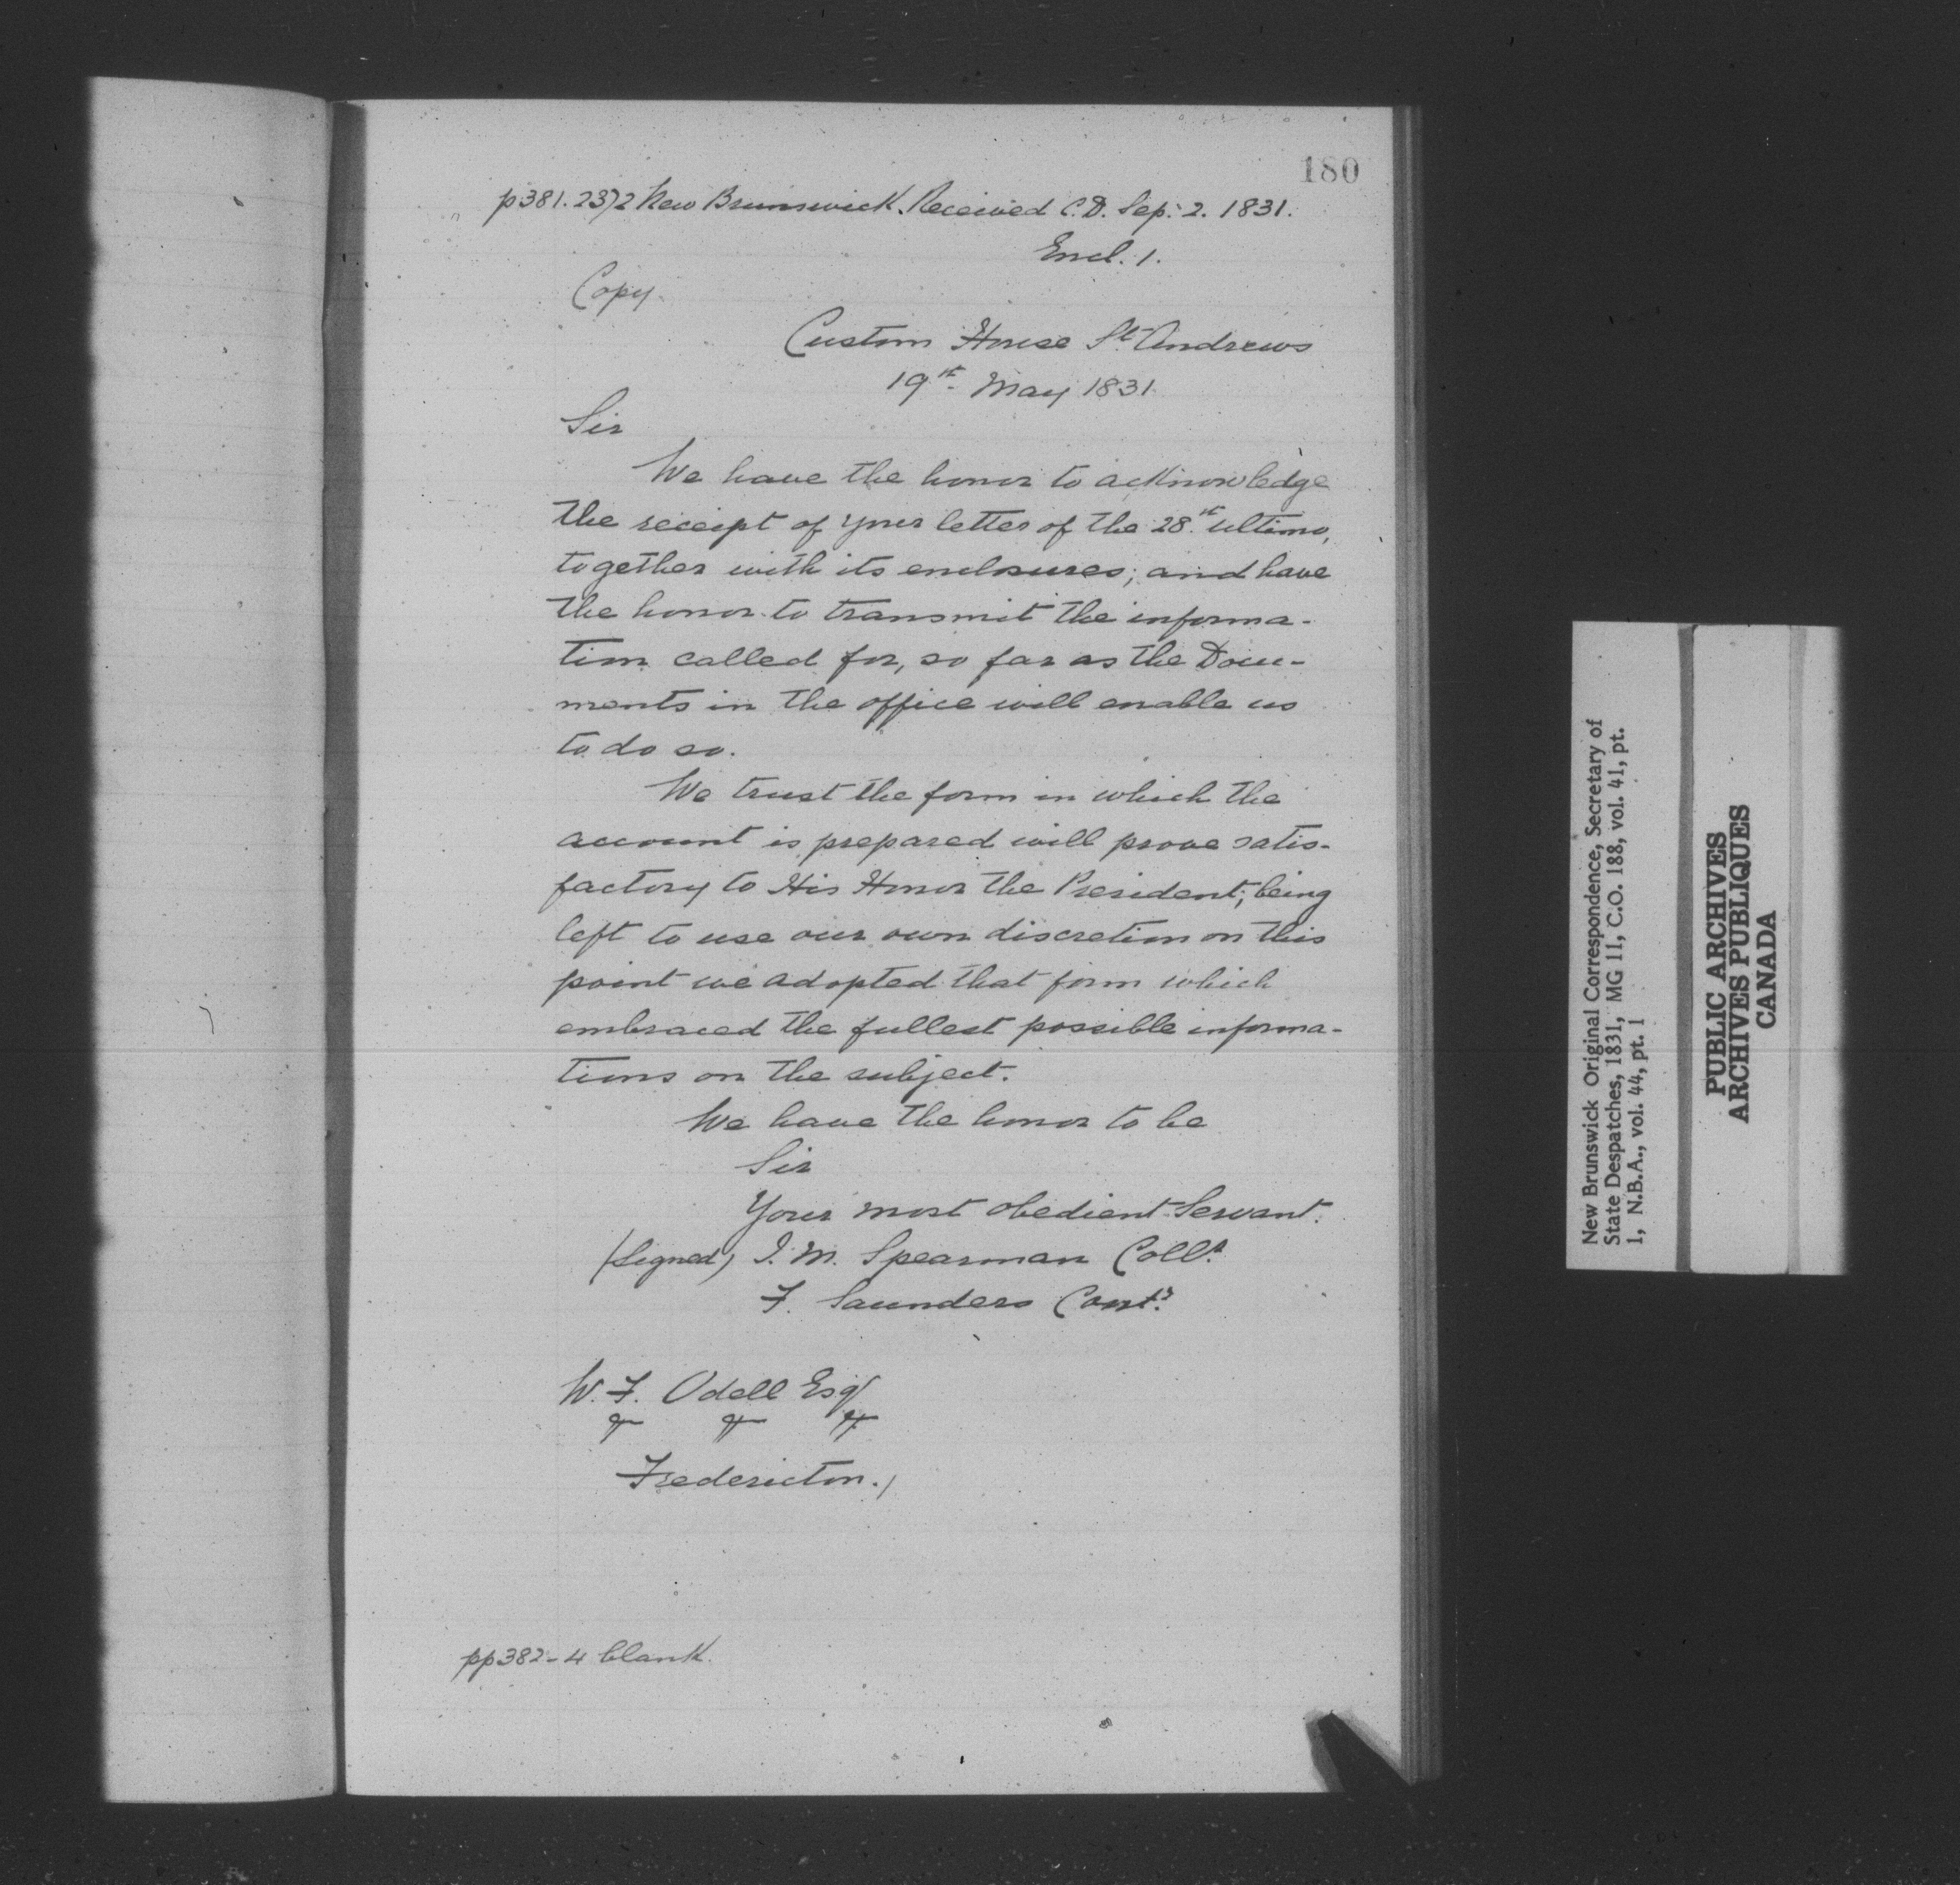 180
p381. 2372 New Brunswick. Received C.D. Sep: 2. 1831.
Encl. 1.
Copy.
Custom House St. Andrews
19th. May 1831.
Sir
We have the honor to acknowledge
the receipt of your letter of the 28.th ultimo,
together with its enclosures; and have
the honor to transmit the informa-
tion called for, so far as the Docu-
ments in the office will enable us
to do so.
We trust the form in which the
account is prepared will prove satis-
factory to His Honor the President; being
left to use our own discretion on this
point we adopted that form which
embraced the fullest possible informa-
tions on the subject.
We have the honor to be
Sir
Your most obedient Servant.
(Signed) I. M. Spearman Collr.
F. Saunders Contr.
W. F. Odell Esqr
Fredericton.
pp 382-4 blank.
New Brunswick Original Correspondence, Secretary of
State Despatches, 1831, MG 11, C.O. 188, vol. 41, pt.
1, N.B.A., vol. 44, pt. 1
PUBLIC ARCHIVES
ARCHIVES PUBLIQUES
CANADA